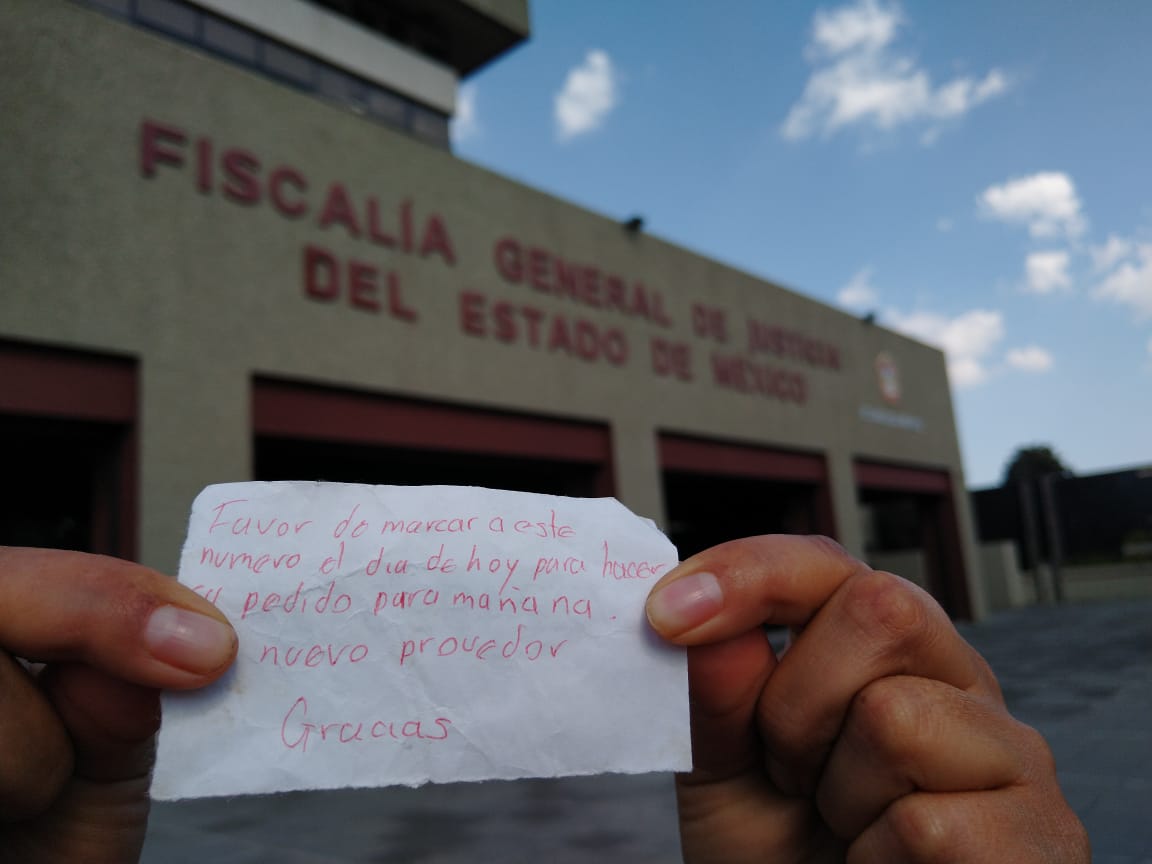 FISCALÍA GENERAL DE JUSTICIA
DEL ESTADO DE MÉXICO
Favor de marcar a este
numero el dia de hoy para hacer
su pedido para mañana.
nuevo provedor
Gracias